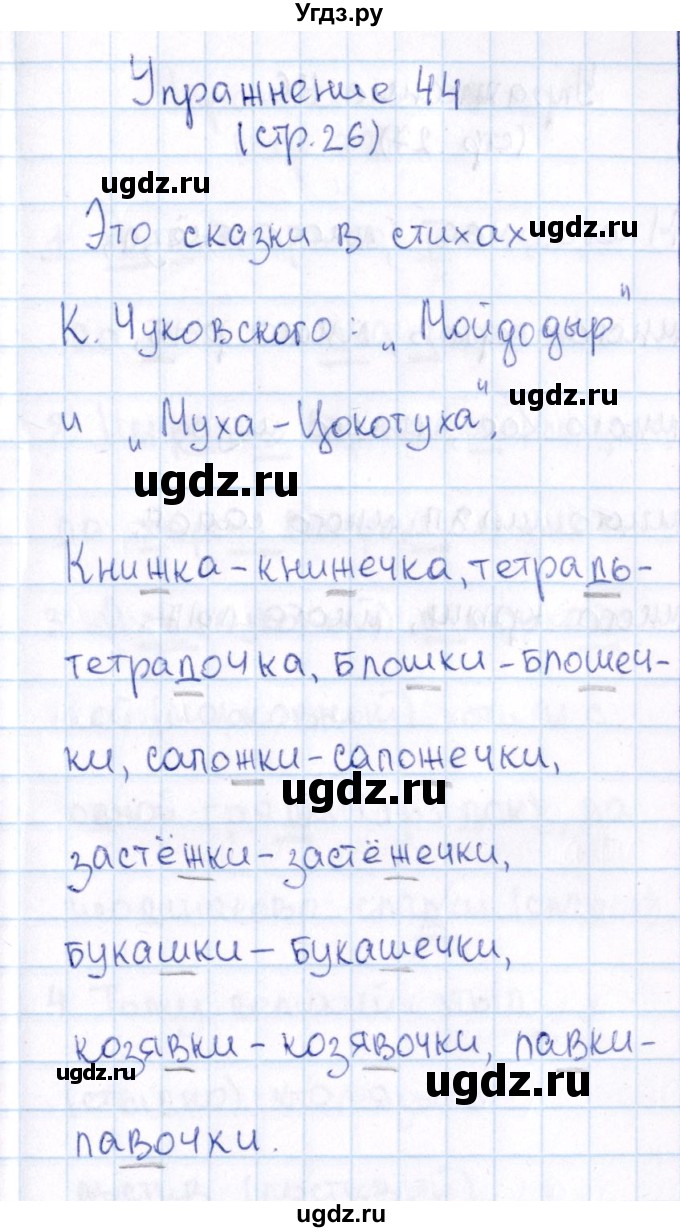 Угдз.ру
Упражнение 44
(стр.26)
ugdz.ru
Это сказки в стихах
К. Чуковского: „Мойдодыр"
ugdz.ru
и „Муха-Цокотуха".
ugdz.ru
Книжка-книжечка, тетрадь-
тетрадочка, блошки-блошеч-
ки, сапожки-сапожечки,
ugdz.ru
застёжки-застёжечки,
букашки-букашечки,
козявки-козявочки, лавки-
ugdz.ru
ugdz.ru
лавочки.
ugdz.ru